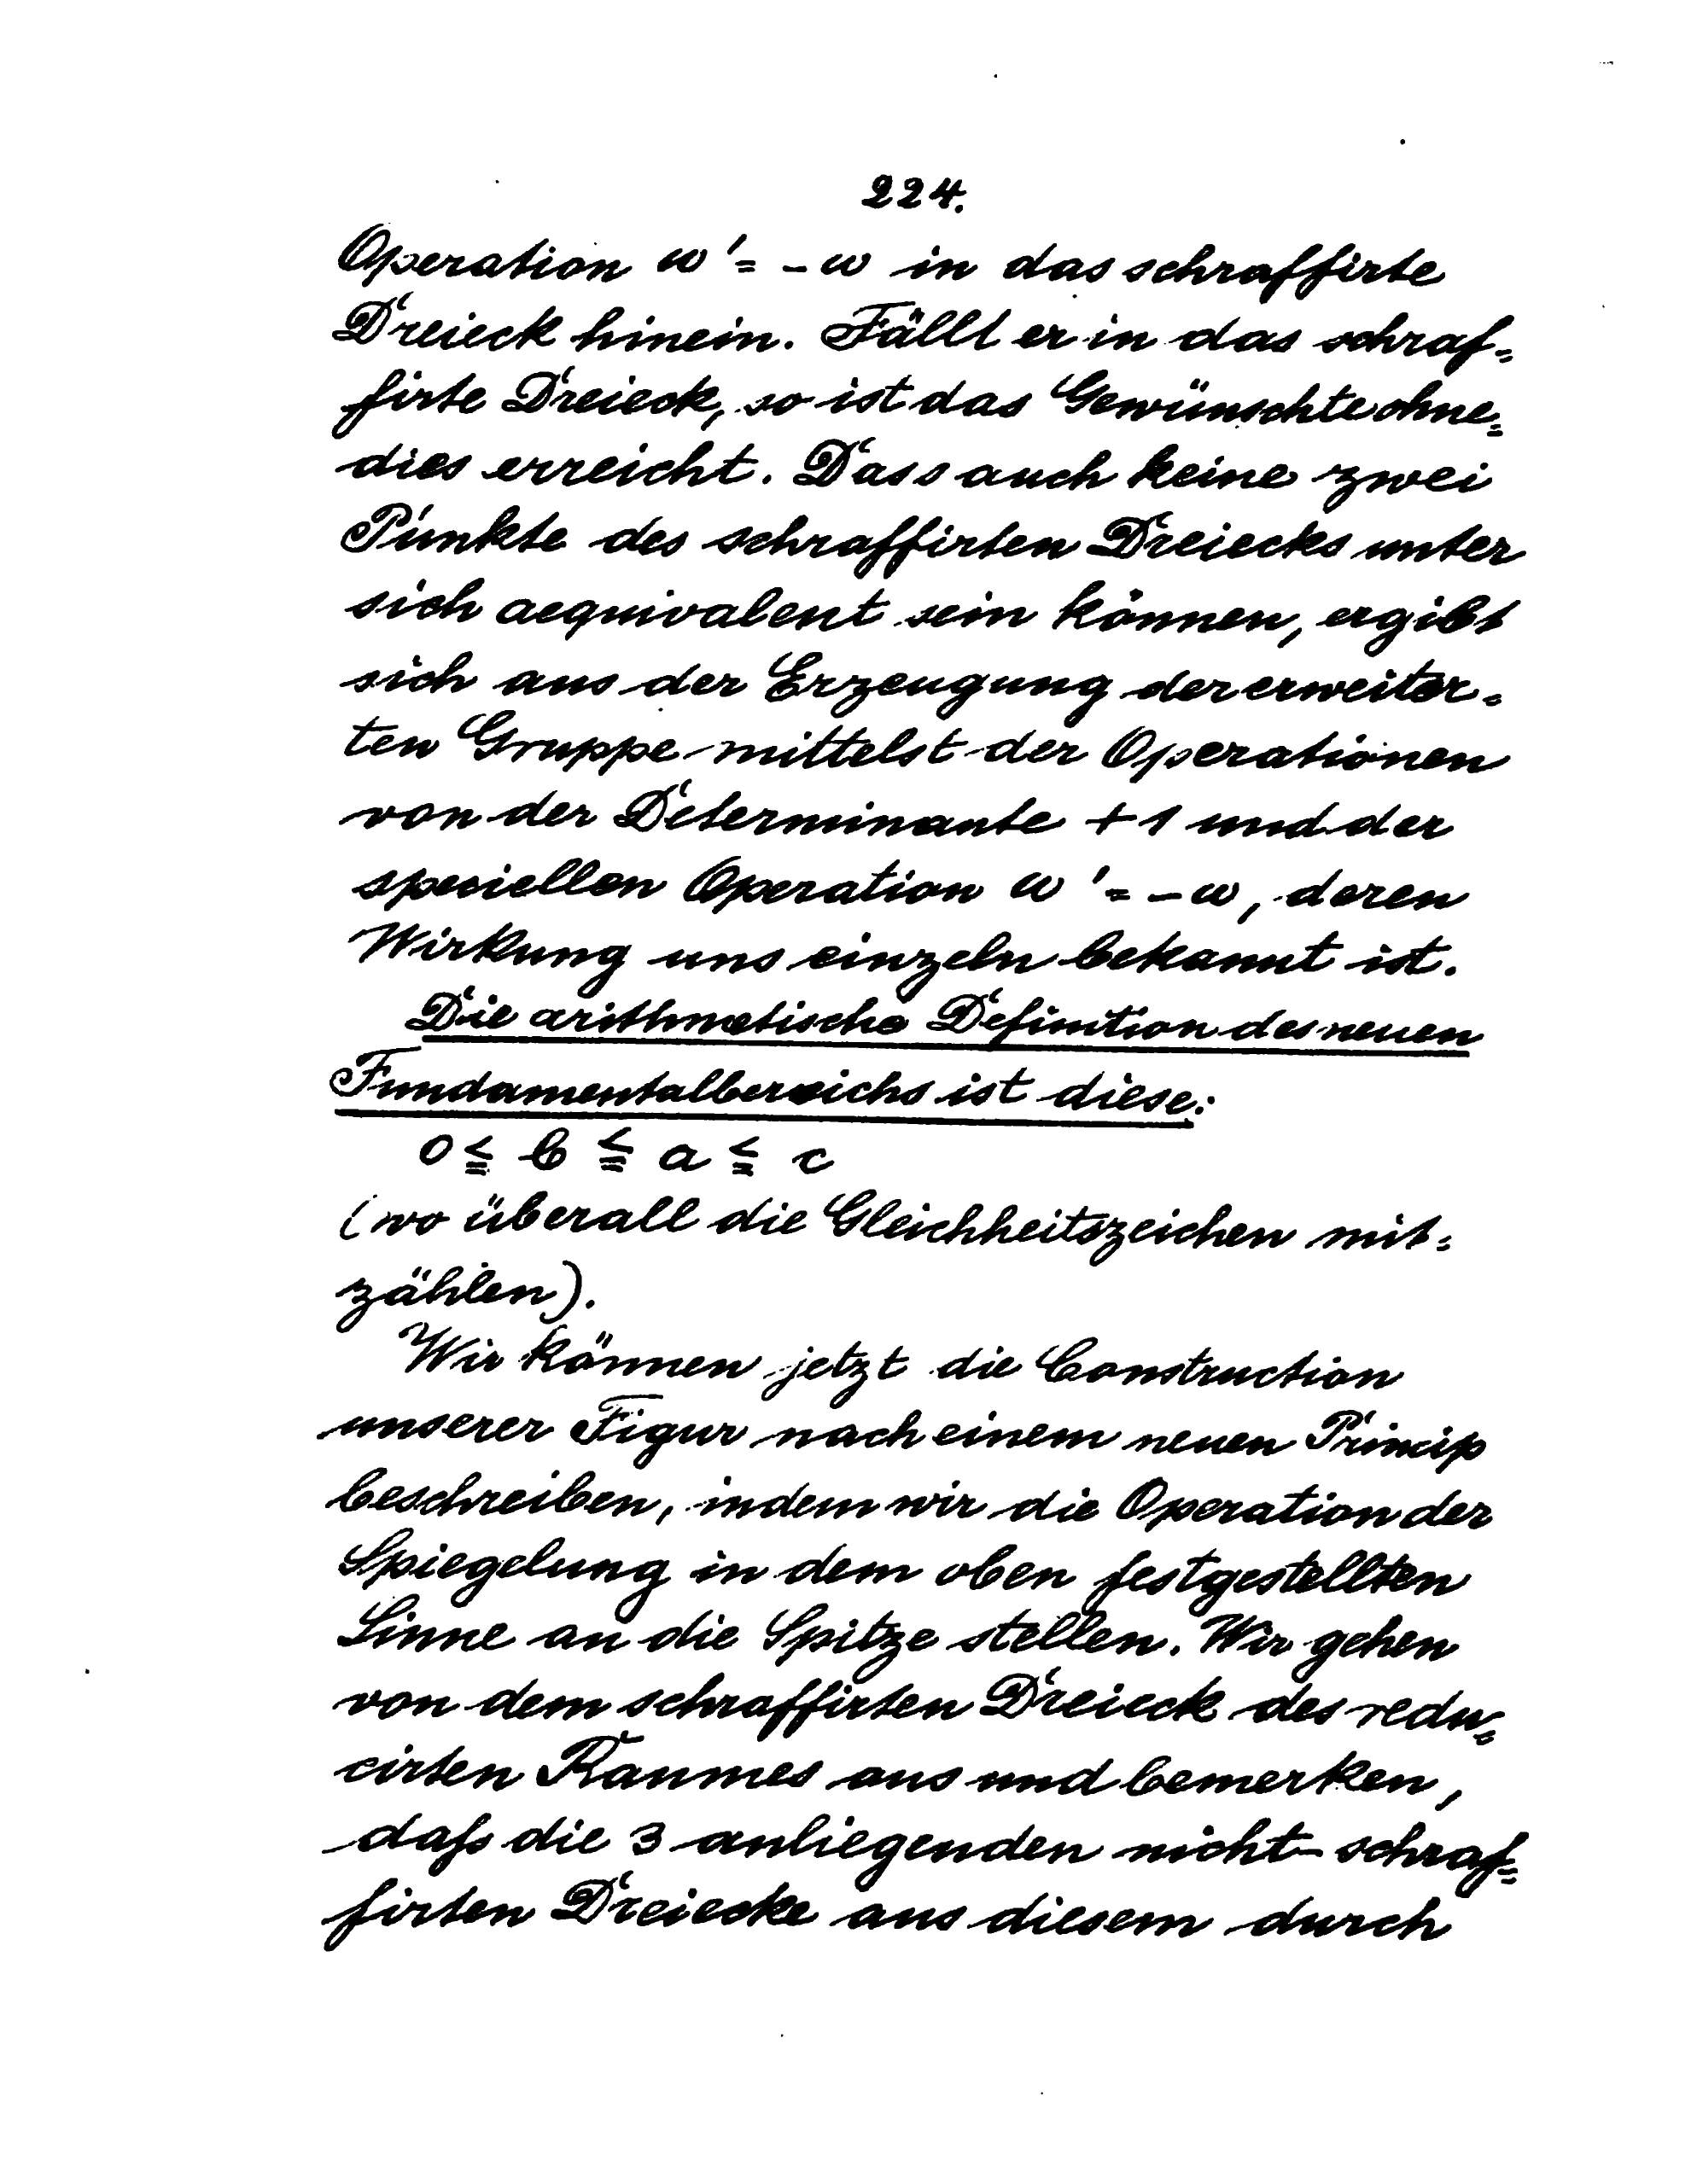 224.
Operation ω' = -ω in das schraffirte
Dreieck hinein. Fällt er in das schraf=
firte Dreieck, so ist das Gewünschte ohne=
dies erreicht. Dass auch keine zwei
Punkte des schraffirten Dreiecks unter
sich aequivalent sein können, ergibt
sich aus der Erzeugung der erweiter=
ten Gruppe mittelst der Operationen
von der Determinante +1 und der
speciellen Operation ω' = -ω, deren
Wirkung uns einzeln bekannt ist.
Die arithmetische Definition des neuen
Fundamentalbereichs ist diese:
0 ≦ b ≦ a ≦ c
(wo überall die Gleichheitszeichen mit=
zählen).
Wir können jetzt die Construction
unserer Figur nach einem neuen Princip
beschreiben, indem wir die Operation der
Spiegelung in dem oben festgestellten
Sinne an die Spitze stellen. Wir gehen
von dem schraffirten Dreieck des redu=
cirten Raumes aus und bemerken,
daſs die 3 anliegenden nicht-schraf=
firten Dreiecke aus diesem durch